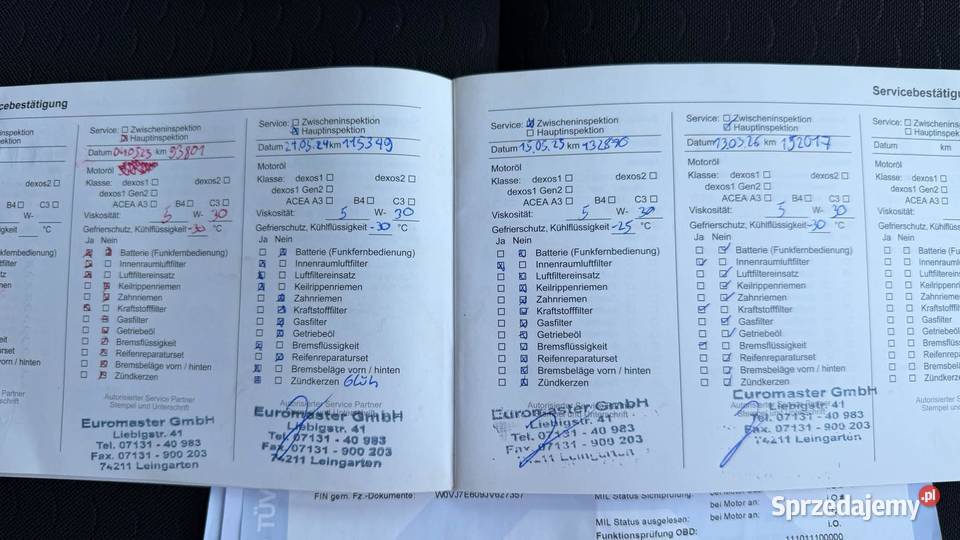 cebestätigung
nspektion
ektion
B4 C3
W-
igkeit °C
kfernbedienung)
lfilter
tz
n
eit
rset
vorn / hinten
Service Partner
schrift
Service: Zwischeninspektion
Hauptinspektion
Datum 040523 km 93801
Motoröl
Klasse: dexos1 dexos2
dexos1 Gen2
ACEA A3 B4 C3
Viskosität: 5 W- 30
Gefrierschutz, Kühlflüssigkeit -30 °C
Ja Nein
Batterie (Funkfernbedienung)
Innenraumluftfilter
Luftfiltereinsatz
Keilrippenriemen
Zahnriemen
Kraftstofffilter
Gasfilter
Getriebeöl
Bremsflüssigkeit
Reifenreparaturset
Bremsbeläge vorn / hinten
Zündkerzen
Autorisierter Service Partner
Stempel und Unterschrift
Euromaster GmbH
Liebigstr. 41
Tel. 07131 - 40 983
Fax. 07131 - 900 203
74211 Leingarten
Service: Zwischeninspektion
Hauptinspektion
Datum 21.05.24 km 115349
Motoröl
Klasse: dexos1 dexos2
dexos1 Gen2
ACEA A3 B4 C3
Viskosität: 5 W- 30
Gefrierschutz, Kühlflüssigkeit -30 °C
Ja Nein
Batterie (Funkfernbedienung)
Innenraumluftfilter
Luftfiltereinsatz
Keilrippenriemen
Zahnriemen
Kraftstofffilter
Gasfilter
Getriebeöl
Bremsflüssigkeit
Reifenreparaturset
Bremsbeläge vorn / hinten
Zündkerzen Glüh
Autorisierter Service Partner
Euromaster GmbH
Liebigstr. 41
Tel. 07131 - 40 983
Fax. 07131 - 900 203
74211 Leingarten
Servicebestätigu
Service: Zwischeninspektion
Hauptinspektion
Datum 15.05.25 km 132890
Motoröl
Klasse: dexos1 dexos2
dexos1 Gen2
ACEA A3 B4 C3
Viskosität: 5 W- 30
Gefrierschutz, Kühlflüssigkeit -25 °C
Ja Nein
Batterie (Funkfernbedienung)
Innenraumluftfilter
Luftfiltereinsatz
Keilrippenriemen
Zahnriemen
Kraftstofffilter
Gasfilter
Getriebeöl
Bremsflüssigkeit
Reifenreparaturset
Bremsbeläge vorn / hinten
Zündkerzen
Autorisierter Service Partner
Euromaster GmbH
Liebigstr. 41
Tel. 07131 - 40 983
Fax. 07131 - 900 203
Leingarten
Service: Zwischeninspektion
Hauptinspektion
Datum 13.03.26 km 152017
Motoröl
Klasse: dexos1 dexos2
dexos1 Gen2
ACEA A3 B4 C3
Viskosität: 5 W- 30
Gefrierschutz, Kühlflüssigkeit -30 °C
Ja Nein
Batterie (Funkfernbedienung)
Innenraumluftfilter
Luftfiltereinsatz
Keilrippenriemen
Zahnriemen
Kraftstofffilter
Gasfilter
Getriebeöl
Bremsflüssigkeit
Reifenreparaturset
Bremsbeläge vorn / hinten
Zündkerzen
Euromaster GmbH
Liebigstr. 41
Tel. 07131 - 40 983
Fax. 07131 - 900 203
74211 Leingarten
Service: Zwischeninspektion
Hauptinspektion
Datum km
Motoröl
Klasse: dexos1
dexos1 Gen2
ACEA A3
Viskosität:
Gefrierschutz, Kühlflüssig
Ja Nein
Batterie (Funk
Innenraumluft
Luftfiltereinsatz
Keilrippenriemen
Zahnriemen
Kraftstofffilter
Gasfilter
Getriebeöl
Bremsflüssigkeit
Reifenreparaturs
Bremsbeläge vo
Zündkerzen
Autorisierter Se
Stempel und
TÜV
FIN gem. Fz.-Dokumente: W0VJ7E609JV627357
MIL Status Sichtprüfung: bei Motor
bei Motor an:
MIL Status ausgelesen: bei Motor an: i.O.
Funktionsprüfung OBD: i.O.
111011100000
Sprzedajemy.pl